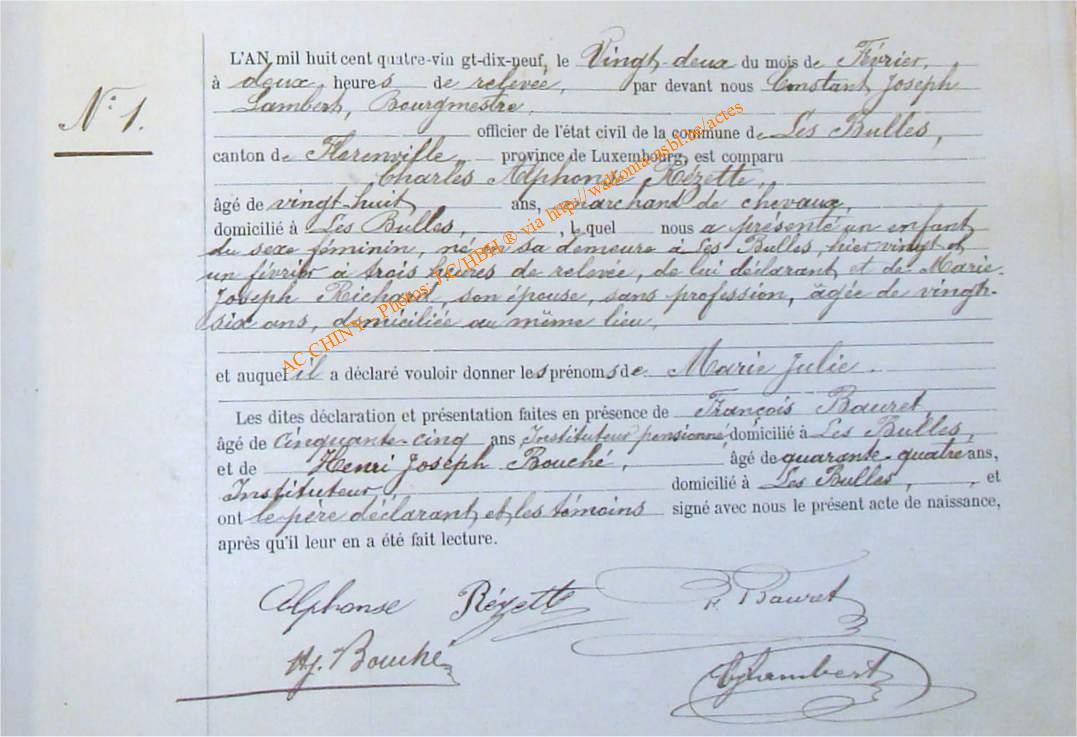 L'AN mil huit cent quatre-vin gt-dix-neuf, le Vingt-deux du mois de Février,
à deux heures de relevée, par devant nous Constant Joseph
Lambert, Bourgmestre,
N° 1.
officier de l'état civil de la commune de Les Bulles,
canton de Florenville, province de Luxembourg, est comparu
Charles Alphonse Rézette,
âgé de vingt-huit ans, marchand de chevaux,
domicilié à Les Bulles, , lequel nous a présenté un enfant
du sexe féminin, né en sa demeure à Les Bulles, hier vingt et
un février à trois heures de relevée, de lui déclarant et de Marie
Joseph Reichard, son épouse, sans profession, âgée de vingt-
six ans, domiciliée au même lieu,
et auquel il a déclaré vouloir donner les prénoms de Marie Julie.
Les dites déclaration et présentation faites en présence de François Bauret,
âgé de cinquante-cinq ans Instituteur pensionné, domicilié à Les Bulles,
et de Henri Joseph Bouché, âgé de quarante quatre ans,
Instituteur, domicilié à Les Bulles, , et
ont le père déclarant et les témoins signé avec nous le présent acte de naissance,
après qu'il leur en a été fait lecture.
Alphonse Rézette F. Bauret
Hj. Bouché CjLambert
AC CHINY - Photos: J.C/HBH ® via http://wallonia-asbl.be/actes